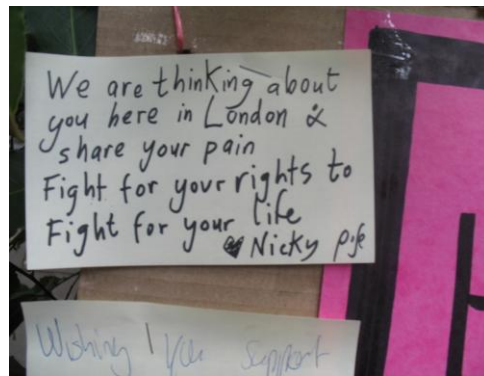 We are thinking about
you here in London &
share your pain
Fight for your rights to
Fight for your life
♥ Nicky
Wishing you support